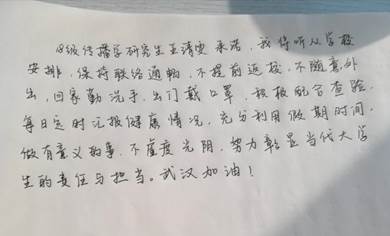 18级传播学研究生王清雯承诺，我将听从学校
安排，保持联络通畅，不提前返校，不随意外
出，回家勤洗手，出门戴口罩，积极配合查验，
每日定时汇报健康情况，充分利用假期时间，
做有意义的事，不虚度光阴，努力彰显当代大学
生的责任与担当。武汉加油！